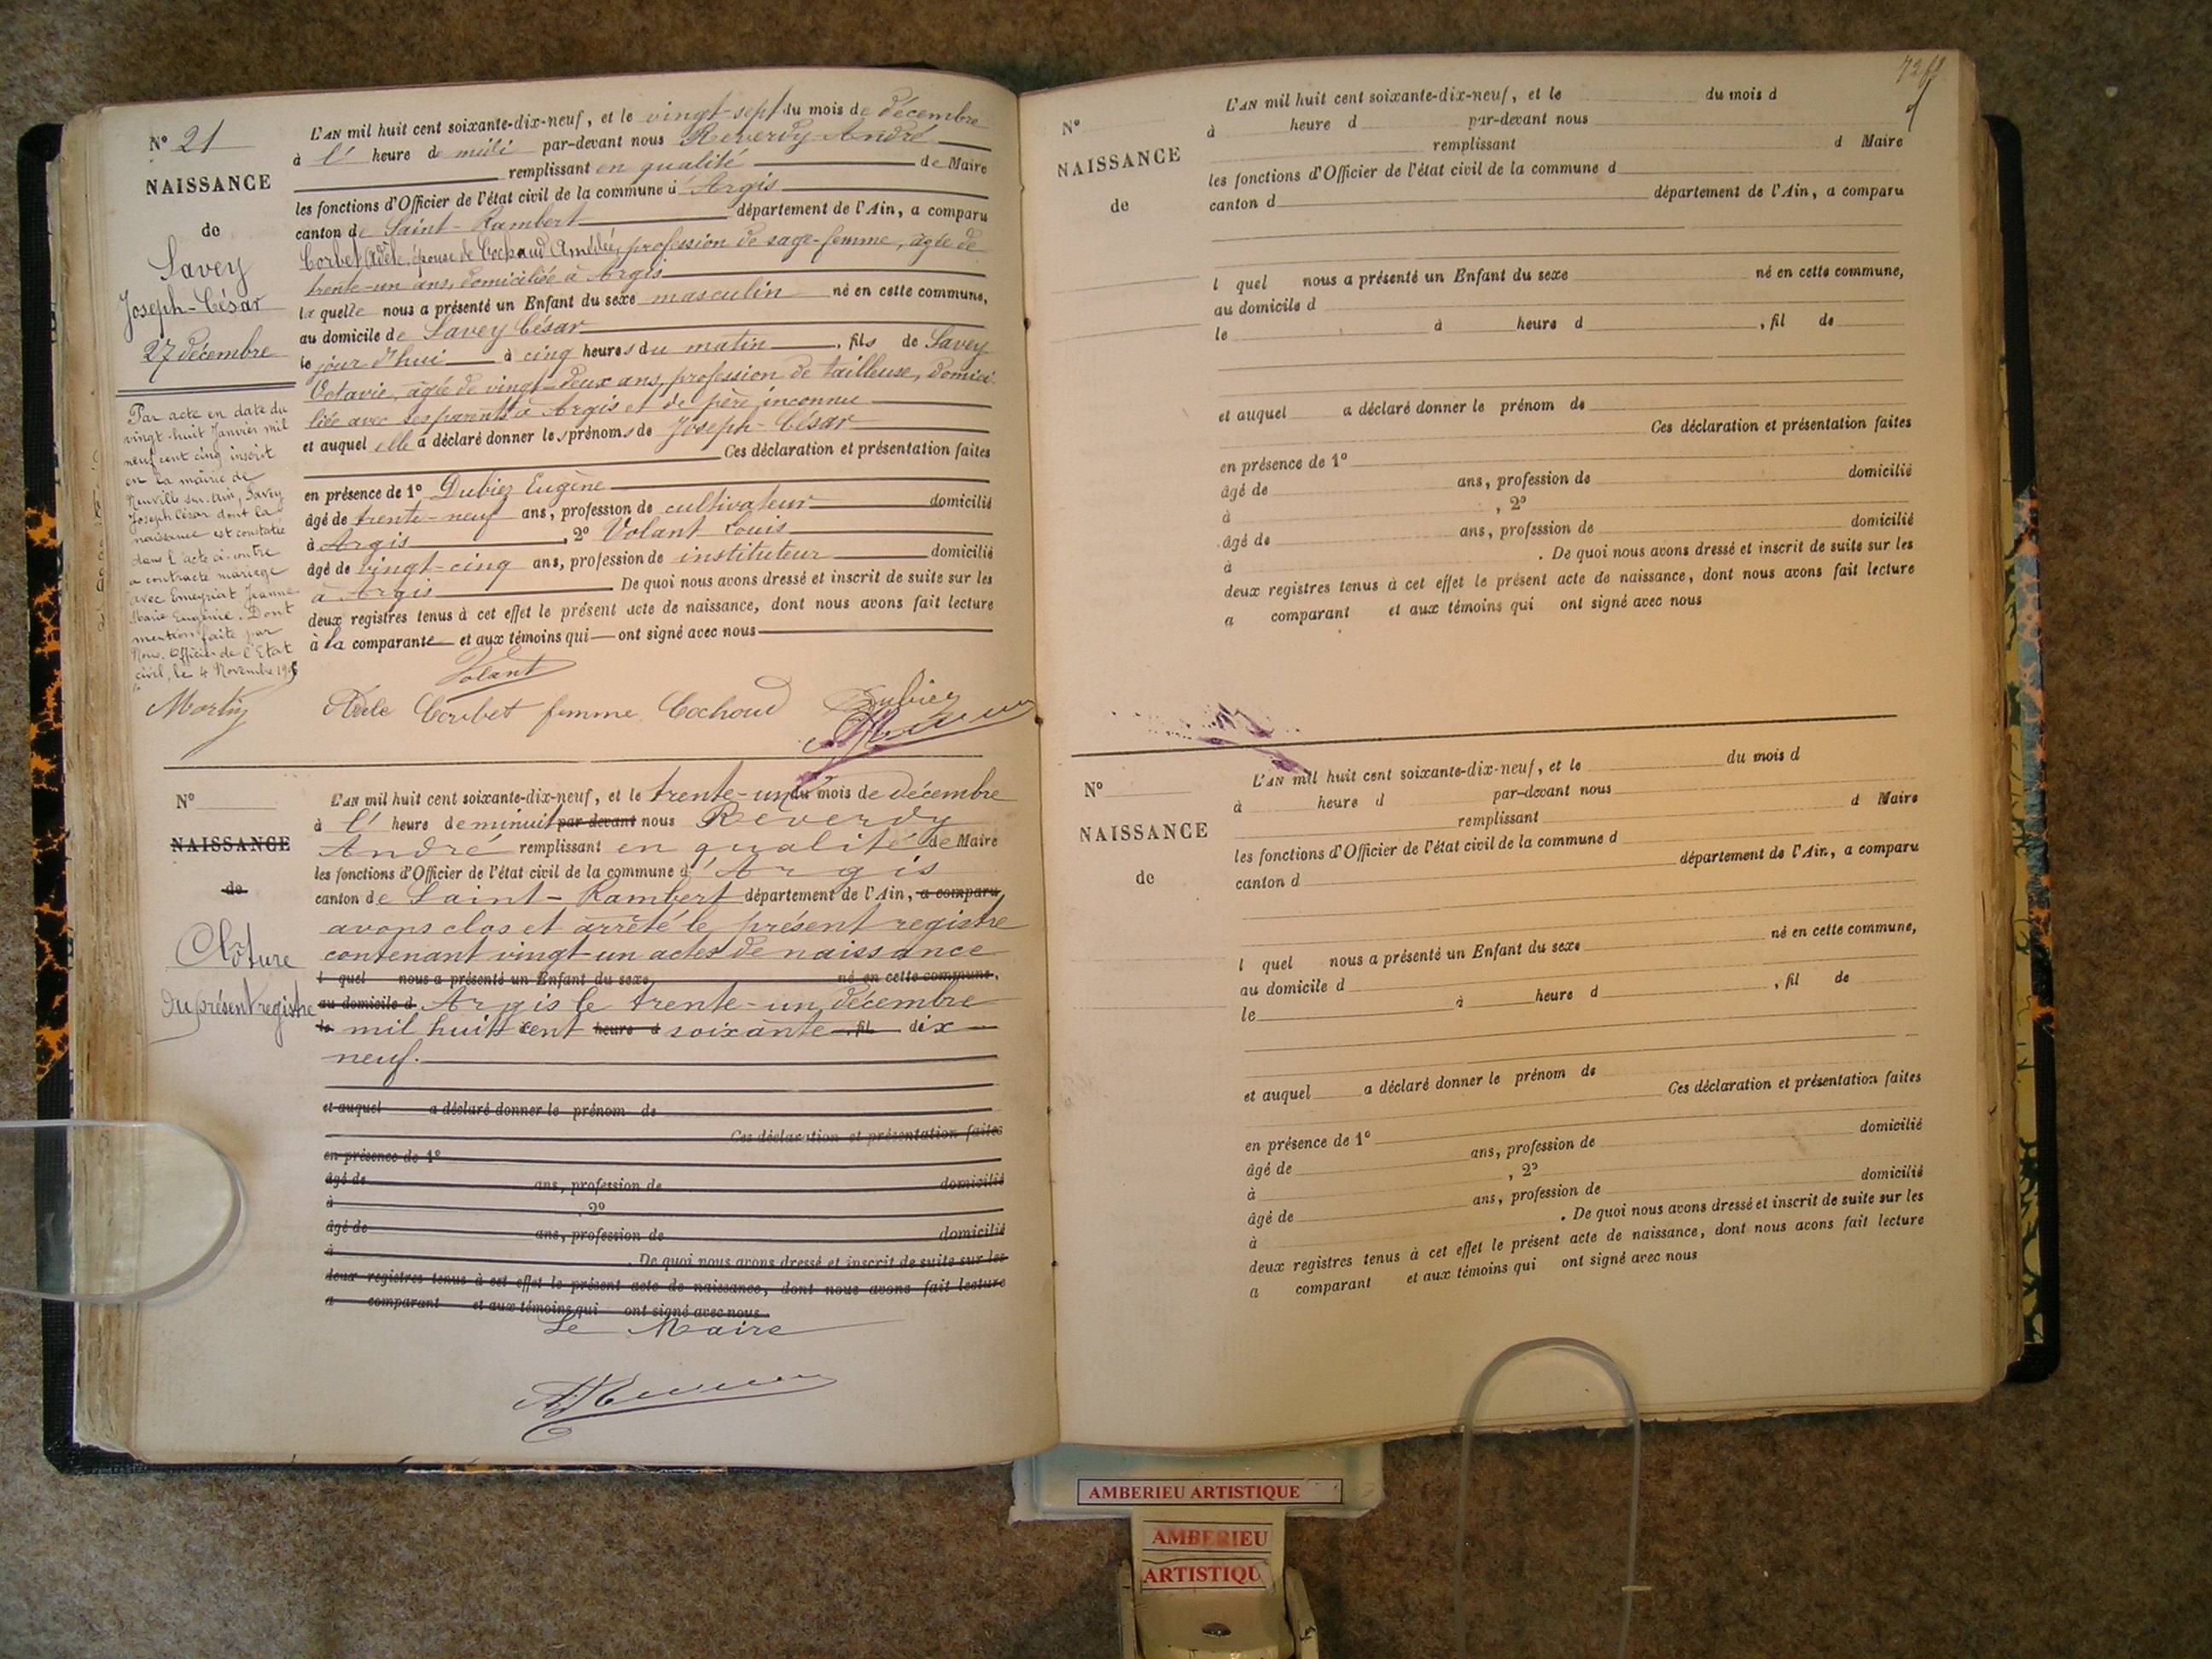 N° 21
NAISSANCE
de
Savey
Joseph-César
27 décembre
Par acte en date du
vingt-huit Janvier mil
neuf cent cinq inscrit
en la mairie de
Neuville sur Ain, Savey
Joseph César dont la
naissance est constatée
dans l'acte ci-contre
a contracté mariage
avec Emeyriat Jeanne
Marie Eugénie. Dont
mention faite par
Nous, Officier de l'Etat
civil, le 4 Novembre
L'AN mil huit cent soixante-dix-neuf, et le vingt-sept du mois de décembre
à l' heure de midi par-devant nous Reverdy André
remplissant en qualité de Maire
les fonctions d'Officier de l'état civil de la commune d'Argis
canton de Saint-Rambert département de l'Ain, a comparu
Corbet Adèle, épouse de Cochaud Amédée, profession de sage-femme, âgée de
trente-un ans, domiciliée à Argis
la quelle nous a présenté un Enfant du sexe masculin né en cette commune,
au domicile de Savey César
le jour d'hui à cinq heures du matin, fils de Savey
Octavie, âgée de vingt-deux ans, profession de tailleuse, domici
liée avec ses parents à Argis et de père inconnu
et auquel elle a déclaré donner les prénoms de Joseph-César
Ces déclaration et présentation faites
en présence de 1° Dubiez Eugène
âgé de trente-neuf ans, profession de cultivateur domicilié
à Argis, 2° Volant Louis
âgé de vingt-cinq ans, profession de instituteur domicilié
à Argis De quoi nous avons dressé et inscrit de suite sur les
deux registres tenus à cet effet le présent acte de naissance, dont nous avons fait lecture
à la comparante et aux témoins qui ont signé avec nous
Volant
Martin
Adele Corbet femme Cochoud
Dubiez
N°
NAISSANCE
de
Clôture
du présent registre
L'AN mil huit cent soixante-dix-neuf, et le trente-un du mois de décembre
à l' heure de minuit par-devant nous Reverdy
André remplissant en qualité de Maire
les fonctions d'Officier de l'état civil de la commune d'Argis
canton de Saint-Rambert département de l'Ain, a comparu
avons clos et arrêté le présent registre
contenant vingt-un actes de naissance
l quel nous a présenté un Enfant du sexe né en cette commune,
au domicile d Argis le trente-un décembre
le mil huit cent heure d soixante fil dix
neuf.
et auquel a déclaré donner le prénom de
Ces déclaration et présentation faites
en présence de 1°
âgé de ans, profession de domicilié
à , 2°
âgé de ans, profession de domicilié
à . De quoi nous avons dressé et inscrit de suite sur les
deux registres tenus à cet effet le présent acte de naissance, dont nous avons fait lecture
a comparant et aux témoins qui ont signé avec nous
Le Maire
N°
NAISSANCE
de
L'AN mil huit cent soixante-dix-neuf, et le du mois d
à heure d par-devant nous
remplissant d Maire
les fonctions d'Officier de l'état civil de la commune d
canton d département de l'Ain, a comparu
l quel nous a présenté un Enfant du sexe né en cette commune,
au domicile d
le à heure d , fil de
et auquel a déclaré donner le prénom de
Ces déclaration et présentation faites
en présence de 1°
âgé de ans, profession de domicilié
à , 2°
âgé de ans, profession de domicilié
à . De quoi nous avons dressé et inscrit de suite sur les
deux registres tenus à cet effet le présent acte de naissance, dont nous avons fait lecture
a comparant et aux témoins qui ont signé avec nous
N°
NAISSANCE
de
L'AN mil huit cent soixante-dix-neuf, et le du mois d
à heure d par-devant nous
remplissant d Maire
les fonctions d'Officier de l'état civil de la commune d
canton d département de l'Ain, a comparu
l quel nous a présenté un Enfant du sexe né en cette commune,
au domicile d
le à heure d , fil de
et auquel a déclaré donner le prénom de
Ces déclaration et présentation faites
en présence de 1°
âgé de ans, profession de domicilié
à , 2°
âgé de ans, profession de domicilié
à . De quoi nous avons dressé et inscrit de suite sur les
deux registres tenus à cet effet le présent acte de naissance, dont nous avons fait lecture
a comparant et aux témoins qui ont signé avec nous
AMBERIEU ARTISTIQUE
AMBERIEU
ARTISTIQU